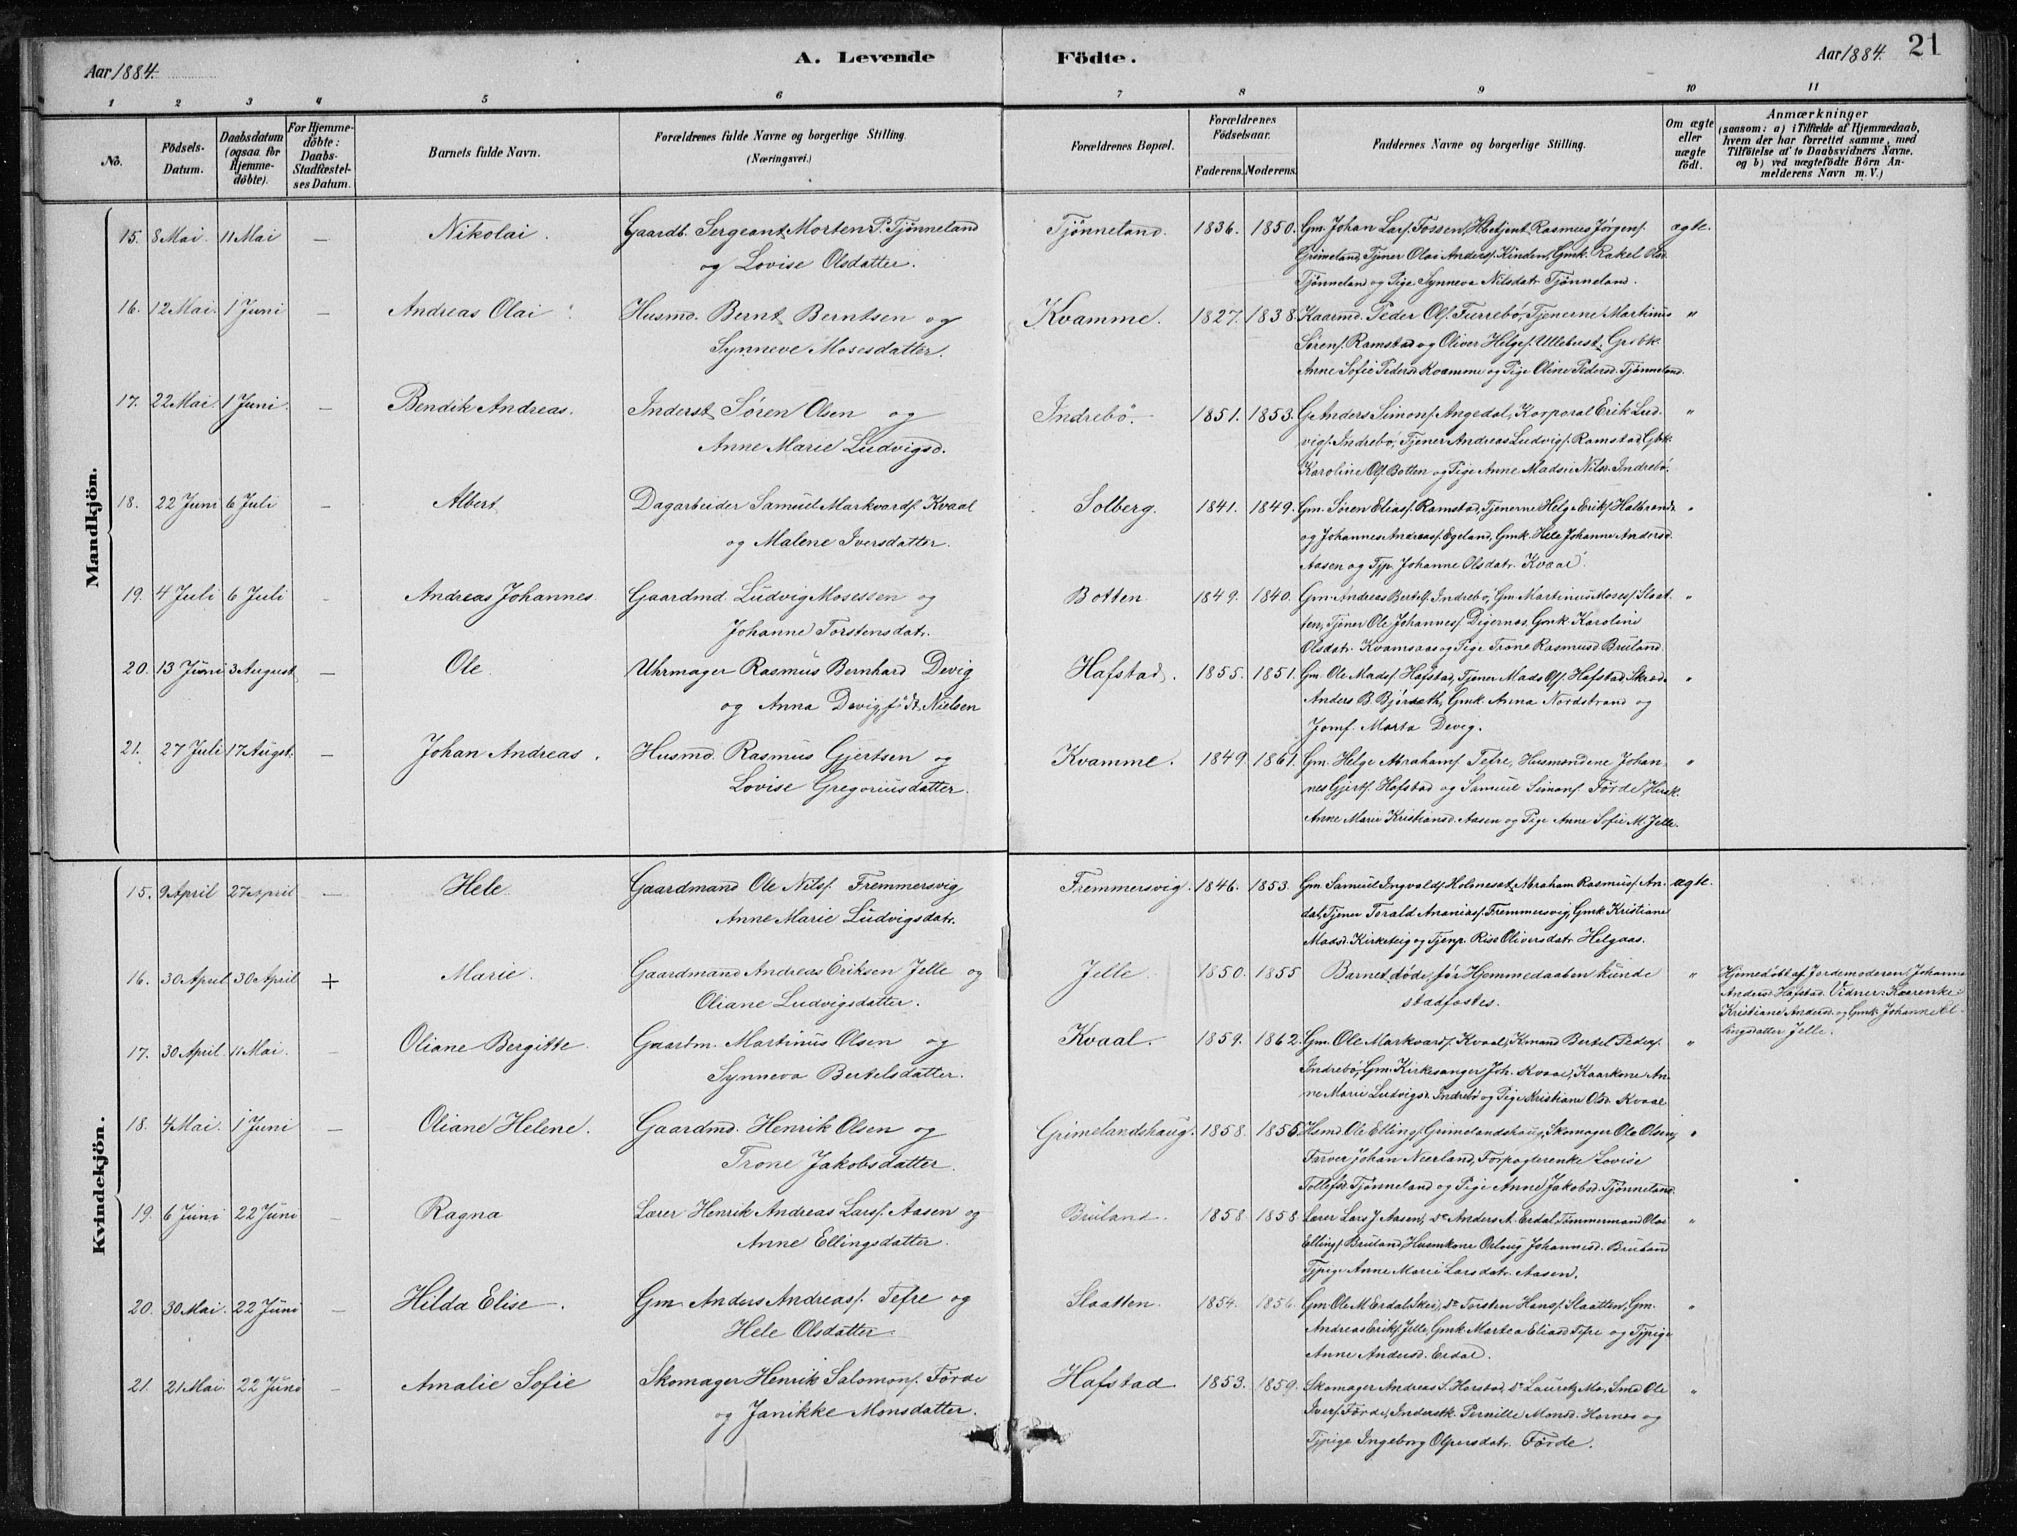 Aar 1884.
A. Levende Födte.
Aar 1884.
21
1 2 3 4 5 6 7 8 9 10 11
No.
Födsels-Datum.
Daabsdatum (ogsaa for Hjemme-döbte).
For Hjemme-döbte: Daabs-Stadfæstel-ses Datum.
Barnets fulde Navn.
Forældrenes fulde Navne og borgerlige Stilling.
(Næringsvei.)
Forældrenes Bopæl.
Forældrenes Födselsaar.
Faderens. Moderens.
Faddernes Navne og borgerlige Stilling.
Om ægte eller uægte födt.
Anmærkninger
(saasom: a) i Tilfælde af Hjemmedaab, hvem der har forrettet samme, med Tilföielse af to Daabsvidners Navne, og b) ved uægtefödte Börn An-melderens Navn m. V.)
Mandkjön.
15. 8 Mai. 11 Mai — Nikolai. Gaardb. Sergeant Morten P. Tjønneland Tjønneland. 1836. 1850. Gm. Johan Larsf. Fossen, Rasmus Jørgensf. ægte.
og Lovise Olsdatter. Grimeland, Tjener Olai Andersf. Kinden, Gmk. Rakel Olsd.
Tjønneland og Pige Synneva Nilsdatr. Tjønneland.
16. 12 Mai. 1 Juni — Andreas Olai Husmd. Bernt Berntsen og Kvamme. 1827. 1838. Kaarmd. Peder Olsf. Furrebø, Tjenerne Martinus "
Synneve Mosesdatter. Sørensf. Ramstad og Oliver Helgesf. Ullebust,
Anne Sofie Pedersd. Kvamme og Pige Oline Pedersd. Tjønneland.
17. 22 Mai. 1 Juni. — Bendik Andreas. Inderst Søren Olsen og Indrebø. 1851. 1853. G. Anders Simonsf. Angedal, Korporal Erik Lud- "
Anne Marie Ludvigsd. vigsf. Indrebø, Tjener Andreas Ludvigsf. Ramstad, Gmk.
Karoline Olsd. Botten og Pige Anne Madsine Nilsd. Indrebø.
18. 22 Juni 6 Juli — Albert Dagarbeider Samuel Markvardsf. Kvaal Solberg. 1841. 1849. Gm. Søren Eliasf. Ramstad, Tjenerne Helge Eriksf. Halbrand "
og Malene Iversdatter. og Johannes Andreasf. Egeland, Gmk. Hele Johanne Andersd.
Aasen og Tjp. Johanne Olsdatr. Kvaal.
19. 4 Juli 6 Juli — Andreas Johannes. Gaardmd. Ludvig Mosessen og Botten. 1849. 1840. Gm. Andreas Bertelsf. Indrebø, Gm. Martinus Mosesf. Slaat- "
Johanne Torstensdatr. ten, Tjener Ole Johannesf. Digernæs, Gmk. Karoline
Olsdatr. Kvamsaas og Pige Trone Rasmusd. Bruland.
20. 13 Juni 3 August — Ole. Uhrmager Rasmus Bernhard Devig Hafstad. 1855. 1851. Gm. Ole Madsf. Hafstad, Tjener Mads Olsf. Hafstad, "
og Anna Devig, født Nielsen Anders B. Gmk. Anna Nordstrand og
Jomf. Marta Devig.
21. 27 Juli 17 Augst. — Johan Andreas. Husmd. Rasmus Gjertsen og Kvamme. 1849 1861. Gm. Helge Abrahamf. Tefre, Husmændene Johan- "
Lovise Gregoriusdatter. nes Gjertsf. Hafstad og Samuel Simonsf. Förde,
Anne Marie Kristiansd. Aasen og Pige Anne Sofie M. Jelle.
Kvindekjön.
15. 9 April 27 April — Hele. Gaardmand Ole Nilsf. Fremmersvig Fremmersvig. 1846. 1853. Gm. Samuel Ingvaldsf. Holmeset, Abraham Rasmusf. An- ægte.
Anne Marie Ludvigsdatr. dal, Tjener Torald Ananiasf. Fremmersvig, Gmk. Kristiane
Madsd. Kirketeig og Tjenp. Rise Oliversdatr. Helgaas.
16. 30 April 30 April + Marie. Gaardmand Andreas Eriksen Jelle og Jelle. 1850. 1855 Barnet døde, før Hjemmedaaben kunde " Hjemedøbt af Jordemoderen Johanne
Oliane Ludvigsdatter. stadfæstes. Andersd. Hafstad. Vidner: Kaarenke
Kristiane Andersd. og Gmk. Johanne El-
lingsdatter Jelle.
17. 30 April 11 Mai. — Oliane Bergitte. Gaardm. Martinus Olsen og Kvaal. 1859. 1862. Gm. Ole Markvardsf. Kvaal, Kmand Bertel Pedersf. "
Synneva Bertelsdatter. Indrebø, Gm. Kirkesanger Joh. Kvaal, Kaarkone An-
ne Marie Ludvigsd. Indrebø og Pige Kristiane Olsd. Kvaal
18. 4 Mai. 1 Juni — Oliane Helene. Gaardmd. Henrik Olsen og Grimelandshaug. 1858. 1855 Hsmd. Ole Ellingsf. Grimelandshaug, Skomager Ole Olsen, "
Trone Jakobsdatter. Farver Johan Neerland, Forpagterenke Lovise
Tollefsd. Tjønneland og Pige Anne Jakobsd. Tjønneland.
19. 6 Juni 22 Juni — Ragna Lærer Henrik Andreas Larsf. Aasen og Bruland. 1858. 1858. Lærer Lars J. Aasen, do Anders A. Erdal, Tømmermand Olai "
Anne Ellingsdatter. Ellingsf. Bruland, Huskone Orlaug Johannesd. Bruland
Tjpige Anne Marie Larsdatr. Aasen.
20. 30 Mai. 22 Juni — Hilda Elise. Gm. Anders Andreasf. Tefre og Slaatten. 1854. 1856. Gm. Ole M. Erdal, Skei, do Torsten Hansf. Slaatten, Gm. "
Hele Olsdatter. Andreas Eriksf. Jelle, Gmk. Martea Eliasd. Tefre og Tjpige
Anne Andersd. Erdal.
21. 21 Mai. 22 Juni — Amalie Sofie Skomager Henrik Salomonsf. Förde Hafstad 1853. 1859. Skomager Andreas S. Horstad, do Lauretz Mo, Smed Ole "
og Janikke Monsdatter. Iversf. Förde, Inderstk. Pernille Monsd. Hornes og
Tjpige Ingeborg Olpersdatr. Förde.